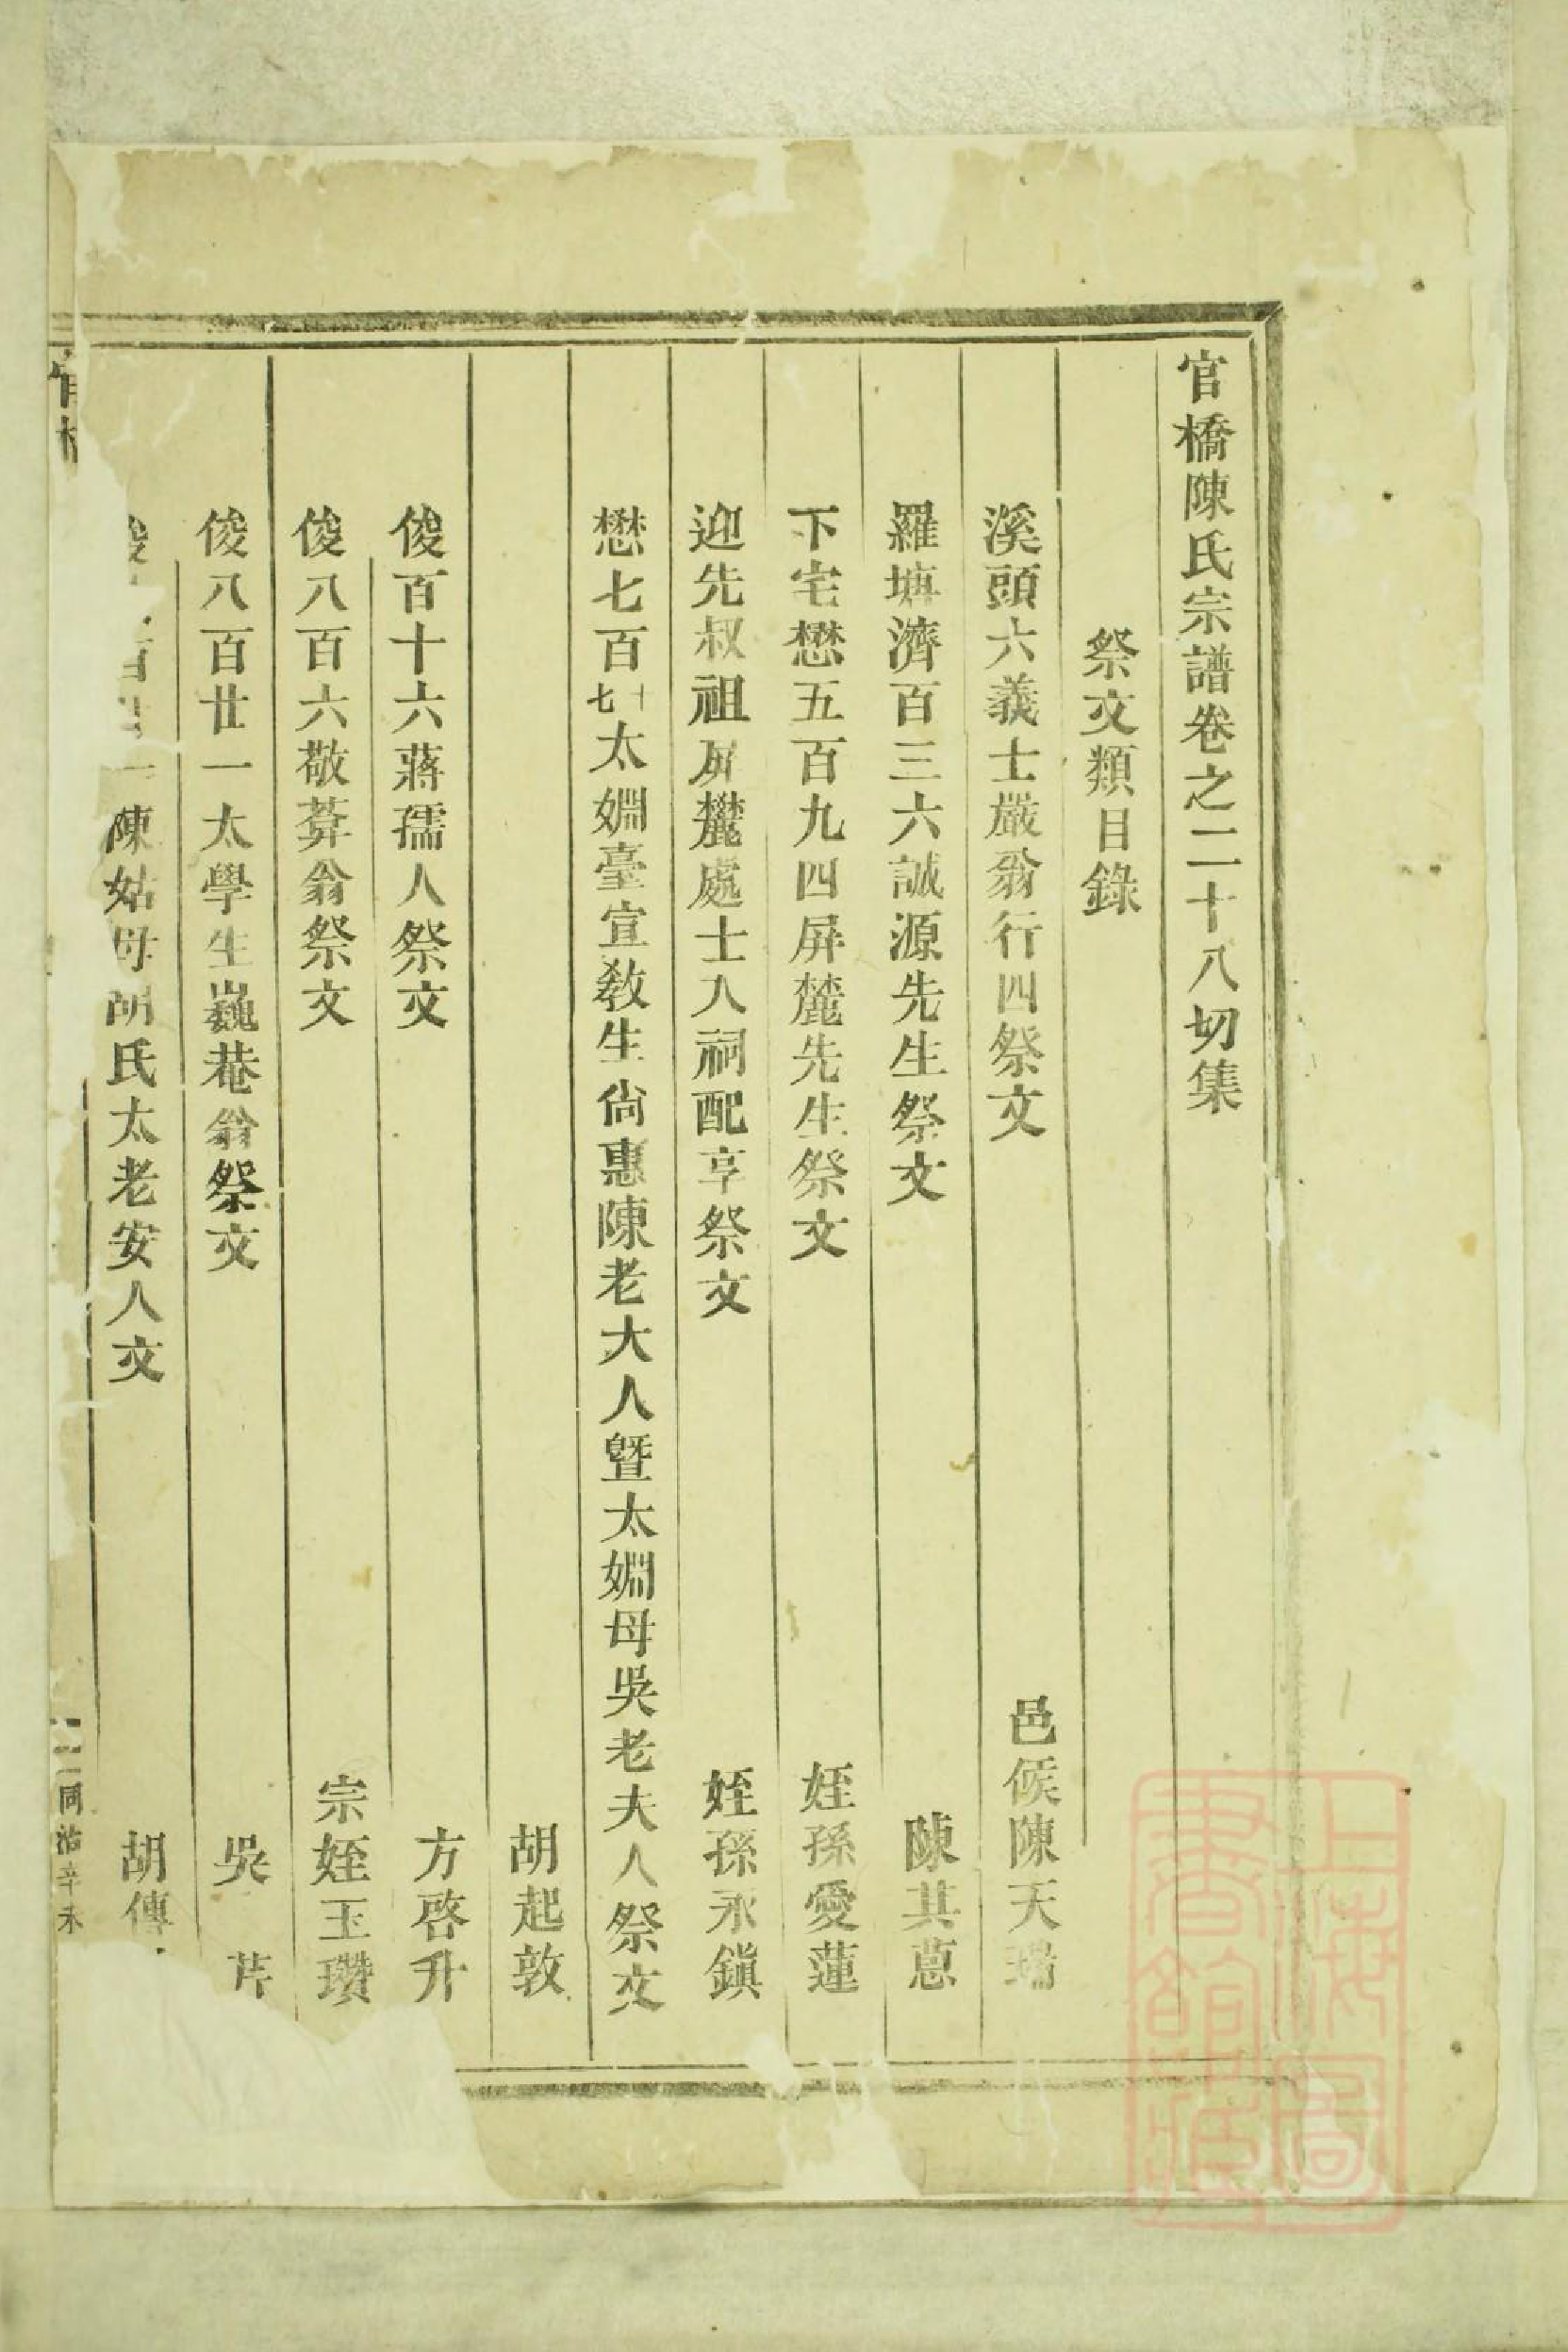 官橋陳氏宗譜卷之二十八切集
祭文類目錄
溪頭六義士嚴翁行四祭文 邑候陳天瑞
羅塘濟百三六誠源先生祭文 陳其蒠
下宅懋五百九四屏麓先生祭文 姪孫愛蓮
迎先叔祖屏麓處士入祠配享祭文 姪孫永鎭
懋七百十七太婣臺宣教生尙惠陳老大人曁太婣母吳老夫人祭文
胡起敦
俊百十六蔣孺人祭文 方啓升
俊八百六敬葊翁祭文 宗姪玉瓚
俊八百廿一太學生巍巷翁祭文 吳芹
陳姑母胡氏太老安人文 胡傳
同治辛未
上海圖書館藏